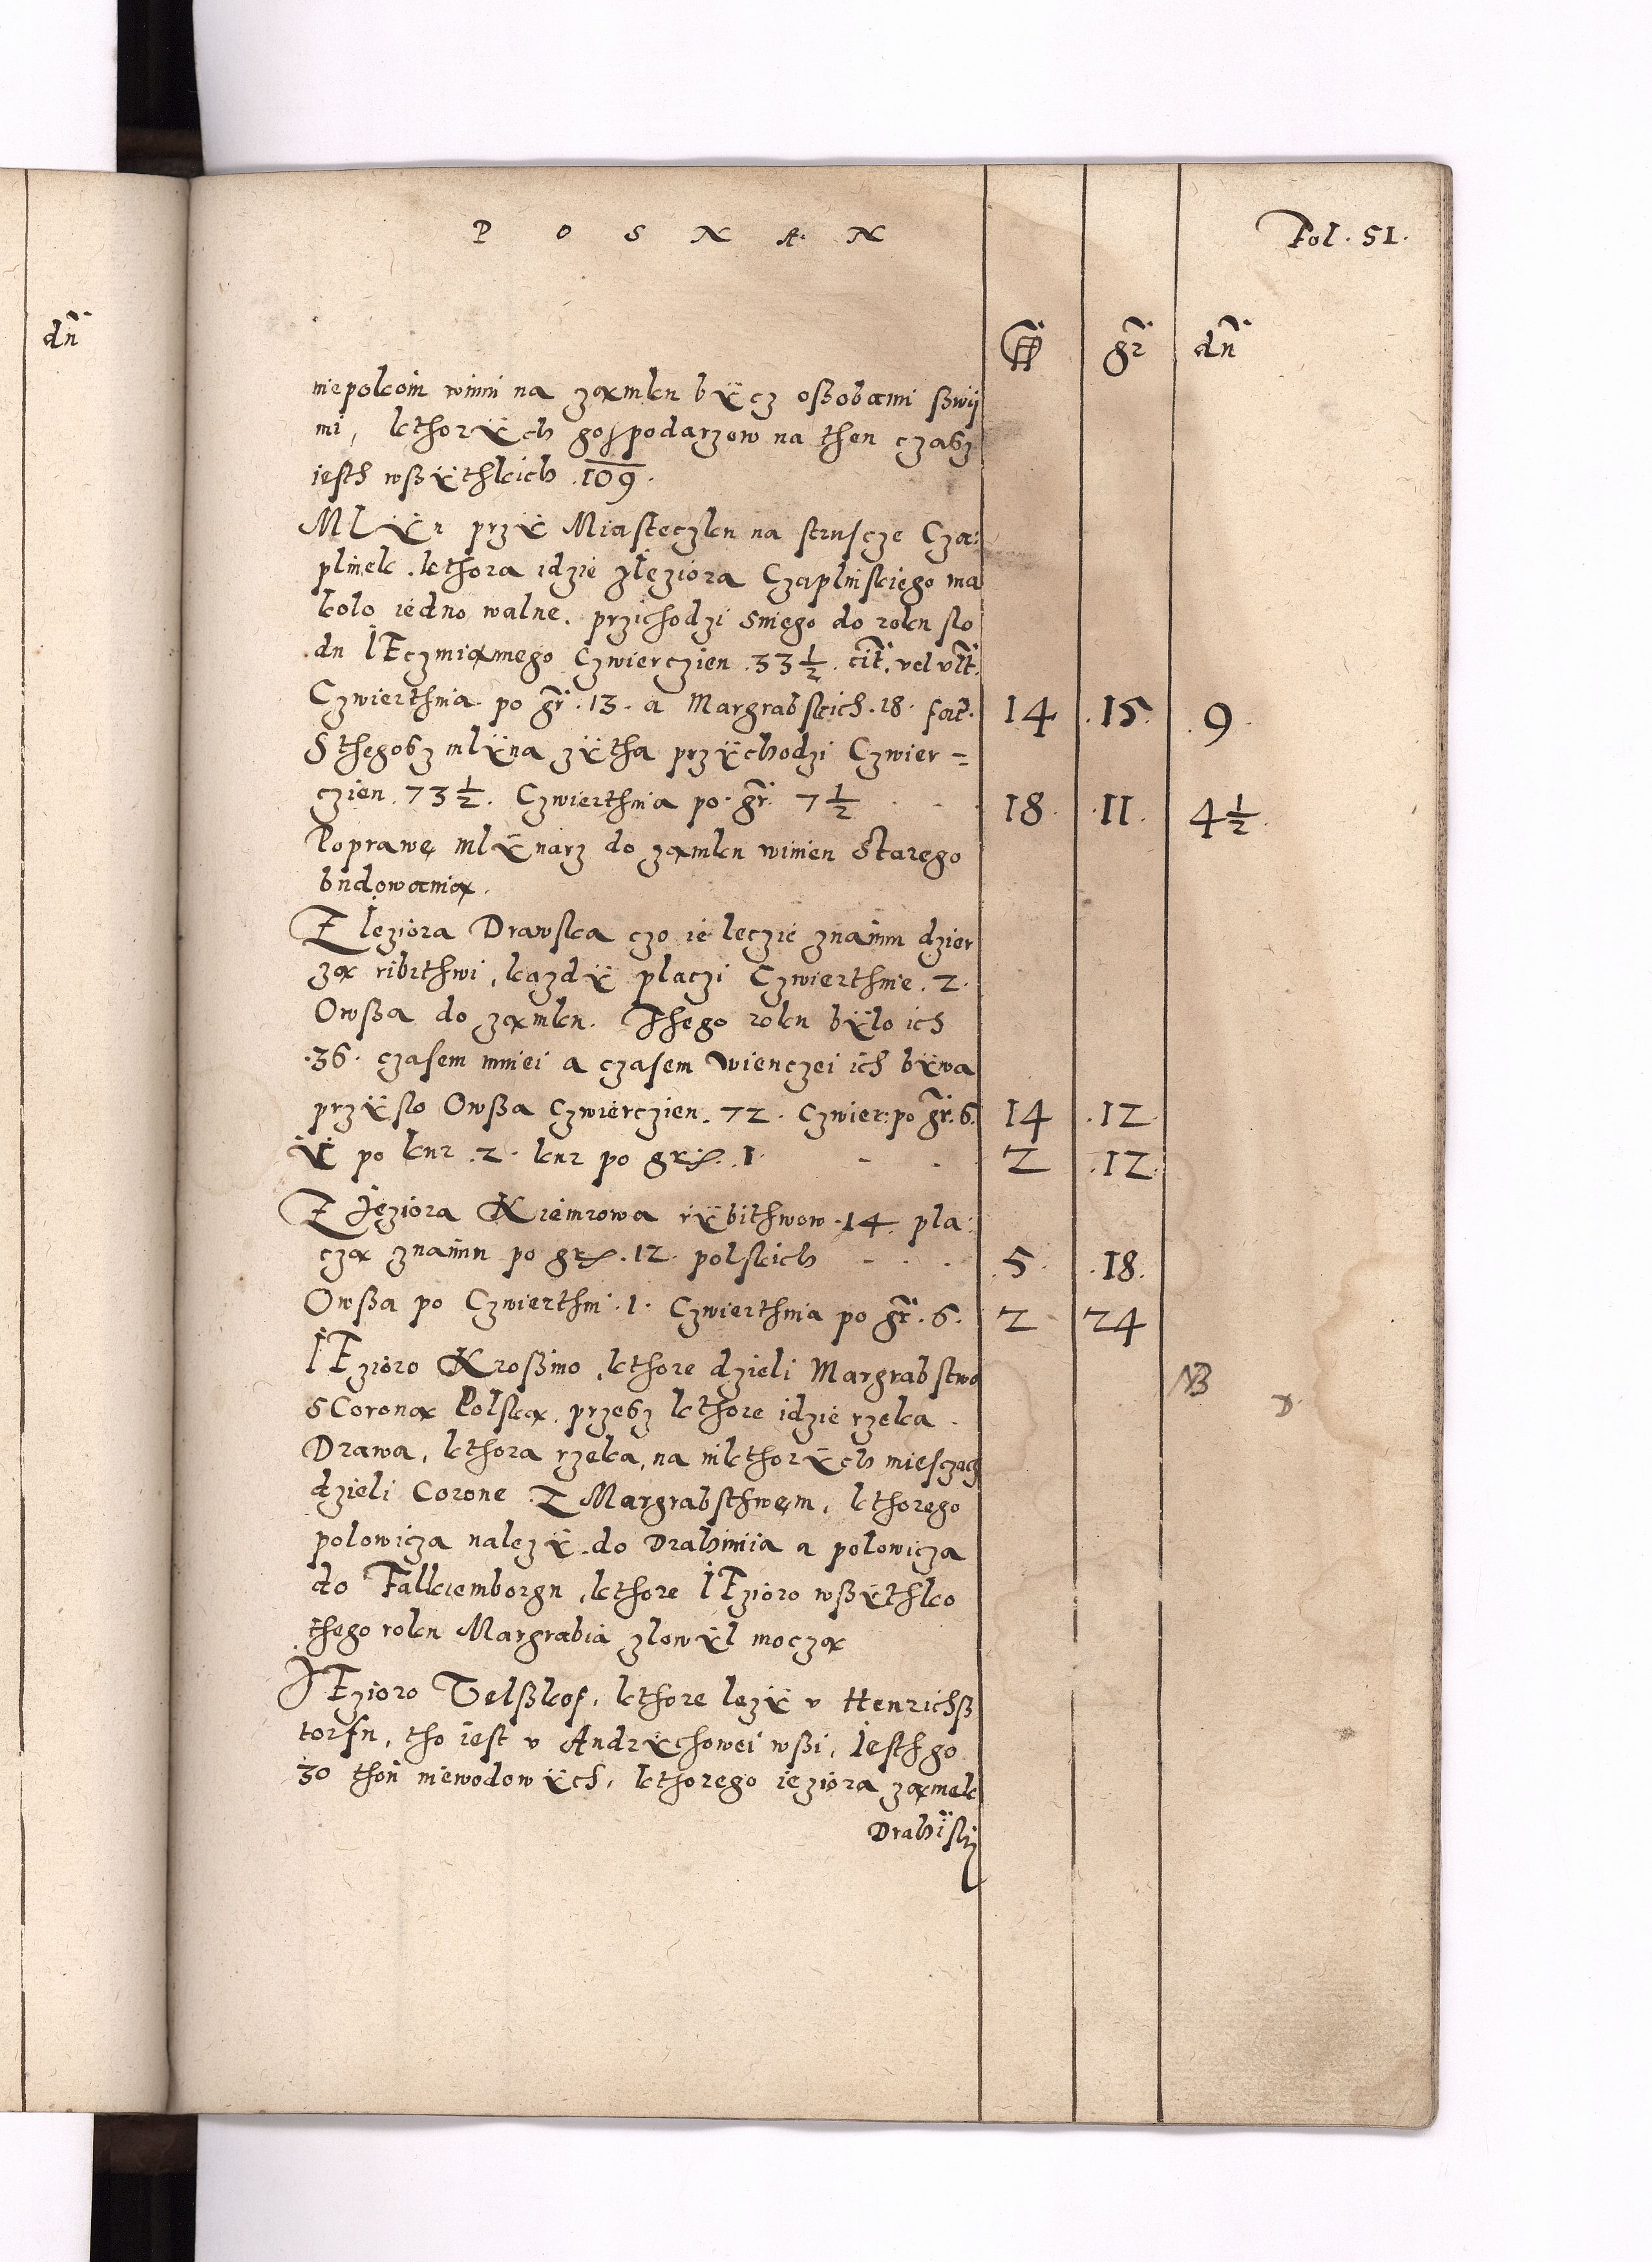 dn̄
P O S N A N
Fol. 51.
gr̄ dn̄
niepokoin winni na zamku bÿcz oßobami ßwÿ
mi, kthorÿch gospodarzow na then czasz
iesth wßÿthkich .109.
Mlÿn przÿ Miasteczku na strusczę Cza:
plinek . kthora idzie z Ieziora Czaplinskiego ma
kolo iedno walne. przichodzi sniego do roku slo
du IEczmiąnnego Czwierczien .33½. cit. vel vlt.
Czwierthnia po gr̄ .13. a Margrabskich .18. fat. 14 .15. .9.
Sthegosz mlÿna zÿtha przÿchodzi Czwier =
czien .73½. Czwierthnia po gr̄. 7½ . . 18. .11. 4½.
Poprawę mlÿnarz do zamku winien starego
budowania.
Z Ieziora Drawska czo ie leczie znamn dzier
zą ribithwi, kazdÿ placzi Czwierthnie .2.
Owßa do zamku. Thego roku bÿlo ich
.36. czasem mniei a czasem wienczei ich bÿwa
przÿslo Owßa Czwierczien .72. Czwier: po gr̄. 6. 14 .12.
ÿ po kur .2. kur po gr. .1. - . . 2 .12.
Z Jeziora Kiemrowa rÿbithwow .14. pla:
czą znamn po gr. .12. polskich - . . .5. .18.
Owßa po Czwierthni .1. Czwierthnia po gr̄. 6. 2 24
IEzioro Kroßino, kthore dzieli Margrabstwo
s Coroną Polską, przesz kthore idzie rzeka .
Drawa, kthora rzeka, na niktorÿch miesczach
dzieli Corone Z Margrabsthwem, kthorego
polowicza nalezÿ do Drahimia a polowicza
do Falkiemborgu, kthore IEzioro wßÿthko
thego roku Margrabia zlowÿl moczą
NB
JEzioro Telßkof, kthore lezÿ v Henrichß
torfu, tho iest v Andrÿchowei wßi, Iesth go
30 thoń niewodowÿch, kthorego ieziora zamek
Drahiiski